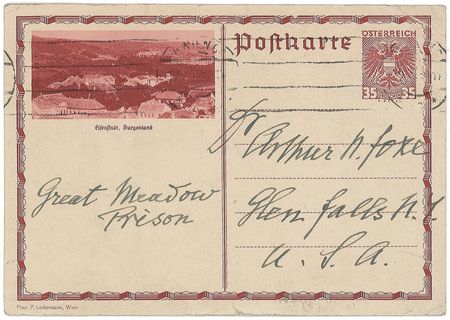 Postkarte
ÖSTERREICH
35 35
Eisenstadt, Burgenland
Dr Arthur N. Foxe
Great Meadow
Prison
Glen falls N.Y.
U. S. A.
Phot. P. Ledermann, Wien